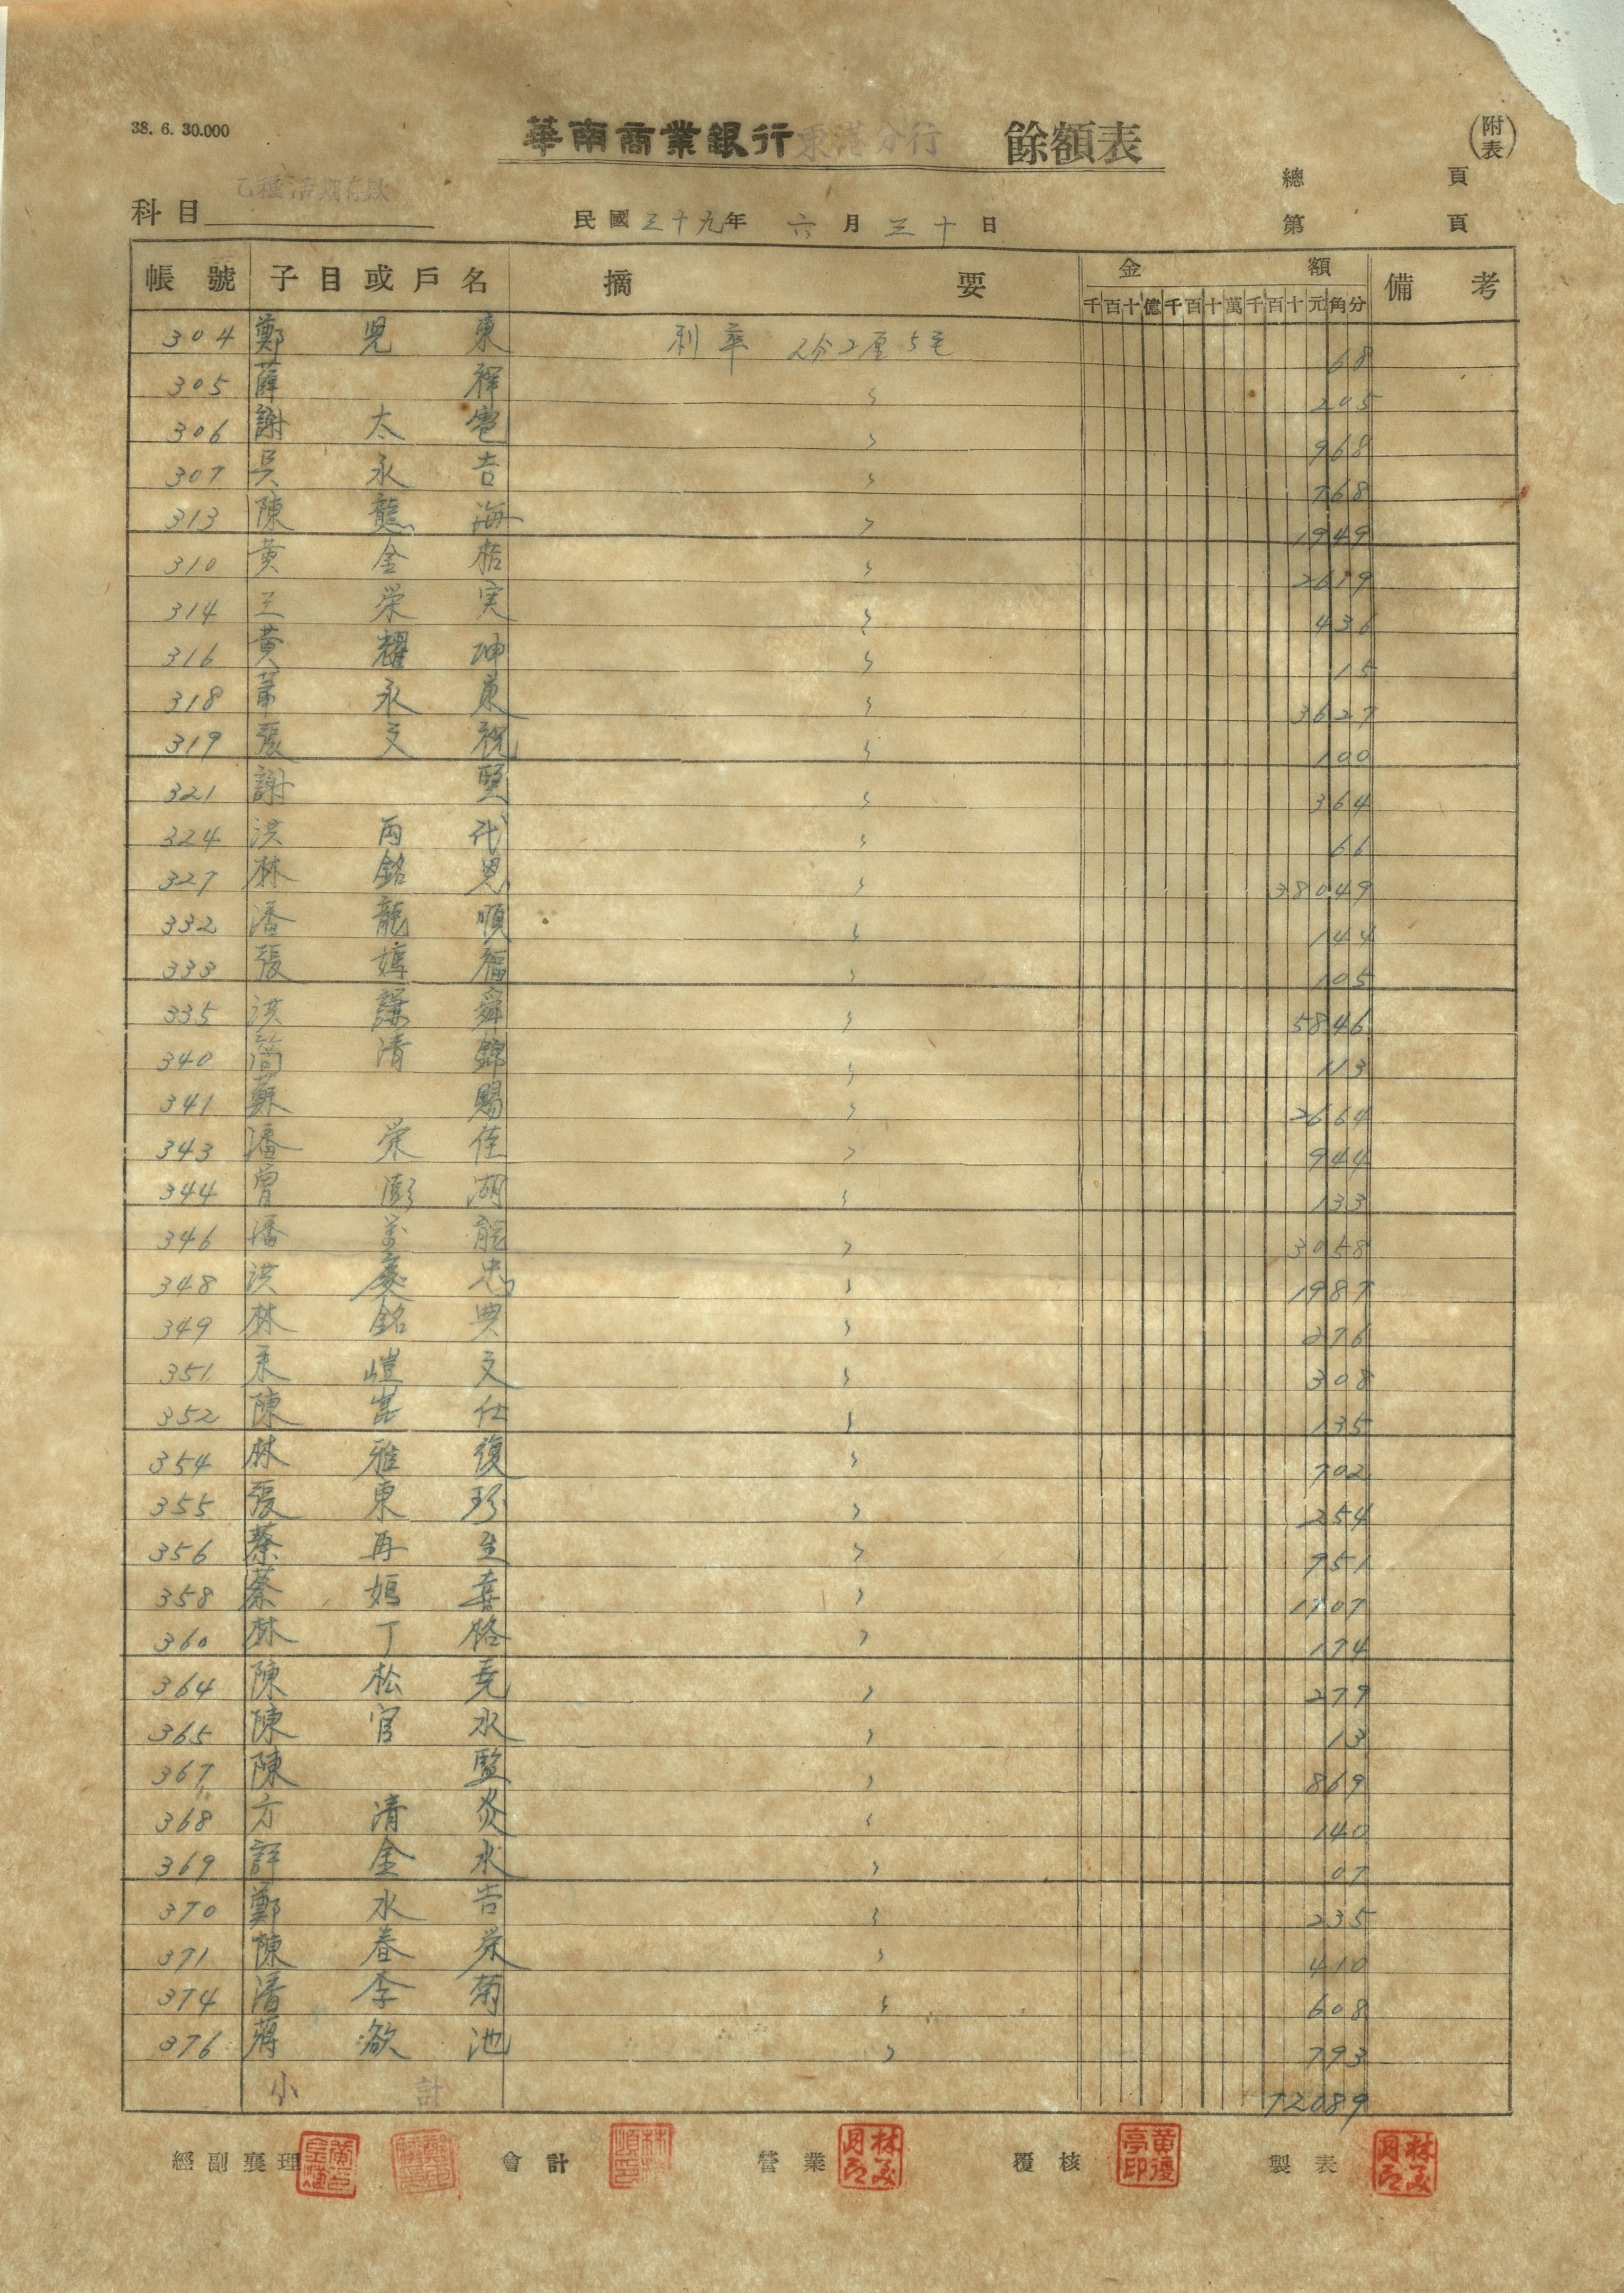 38. 6. 30.000
華南商業銀行東港分行 餘額表 (附表)
總 頁
乙種活期存款
科目 民國三十九年 六月三十日 第 頁
帳號 子目或戶名 摘要 金額 備考
千百十億千百十萬千百十元角分
304 鄭 東 利率 2分2厘5毛 68
305 薛 釋 〃 205
306 謝太 〃 968
307 吳永吉 〃 768
313 陳龍海 〃 1949
310 黃金 〃 2619
314 王榮実 〃 436
316 黃耀坤 〃 15
318 永 〃 3627
319 張文祝 〃 100
321 謝 賢 〃 364
324 洪丙代 〃 66
327 林銘 〃 38049
332 潘龍順 〃 144
333 張 福 〃 105
335 洪謀舜 〃 5846
340 清錦 〃 113
341 蘇 賜 〃 2664
343 潘栄佳 〃 944
344 曾澎湖 〃 133
346 潘 龍 〃 3058
348 洪慶忠 〃 1987
349 林銘典 〃 276
351 文 〃 308
352 陳崑仕 〃 135
354 林雅復 〃 702
355 張東珍 〃 254
356 蔡再生 〃 951
358 蔡媽喜 〃 1707
360 林丁 〃 174
364 陳松堯 〃 279
365 陳官水 〃 13
367 陳 監 〃 869
368 方清炎 〃 140
369 許金水 〃 07
370 鄭水吉 〃 235
371 陳春栄 〃 410
374 潘李菊 〃 608
376 蔣欲池 〃 793
小計 72089
經副襄理 會計 營業 覆核 黃優亭印 製表